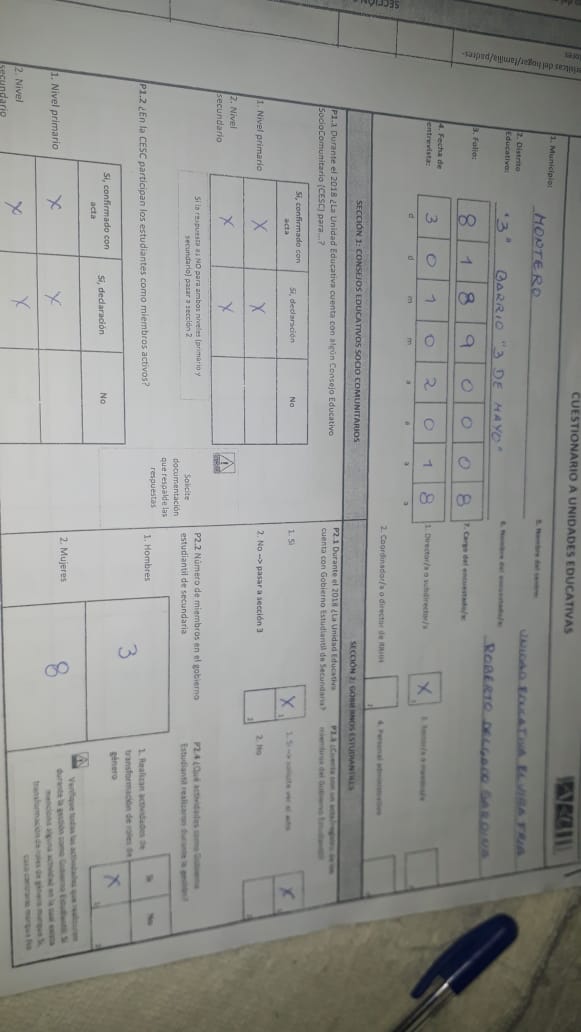 CUESTIONARIO A UNIDADES EDUCATIVAS
1. Municipio: MONTERO
2. Distrito Educativo: "3" BARRIO "3 DE MAYO"
3. Folio: 8 1 8 9 0 0 0 8
4. Fecha de entrevista: 3 0 1 0 2 0 1 8
d d m m a a a a
UNIDAD EDUCATIVA
6. Nombre del encuestado/a: ROBERTO DELGADO
7. Cargo del encuestado/a:
1. Director/a o subdirector/a X
2. Coordinador/a o director de
4. Personal administrativo
SECCIÓN 1: CONSEJOS EDUCATIVOS SOCIO COMUNITARIOS
P1.1 Durante el 2018 ¿La Unidad Educativa cuenta con algún Consejo Educativo
SocioComunitario (CESC) para...?
Sí, confirmado con acta
Sí, declaración
No
1. Nivel primario X X
2. Nivel secundario X X
Si la respuesta es NO para ambos niveles (primario y
secundario) pasar a sección 2
Solicite
documentación
que respalde las
respuestas
P1.2 ¿En la CESC participan los estudiantes como miembros activos?
Sí, confirmado con acta
Sí, declaración
No
1. Nivel primario X X
2. Nivel secundario X X
SECCIÓN 2: GOBIERNOS ESTUDIANTILES
P2.1 Durante el 2018 ¿La Unidad Educativa
cuenta con Gobierno Estudiantil de Secundaria?
1. Sí X
2. No --> pasar a sección 3
P2.2 Número de miembros en el gobierno
estudiantil de secundaria
1. Hombres 3
2. Mujeres 8
miembros del Gobierno Estudiantil
1. Sí --> solicite ver el acta X
2. No
P2.4 ¿Qué actividades como Gobierno
Estudiantil realizaron durante la gestión?
Si No
1. Realizan actividades de
transformación de roles de
género X
Verifique todas las actividades que realizaron
durante la gestión como Gobierno Estudiantil. Si
menciona alguna actividad en la cual exista
transformación de roles de género marque Si,
caso contrario marque No
del hogar/familia/padres-
SECCIÓN